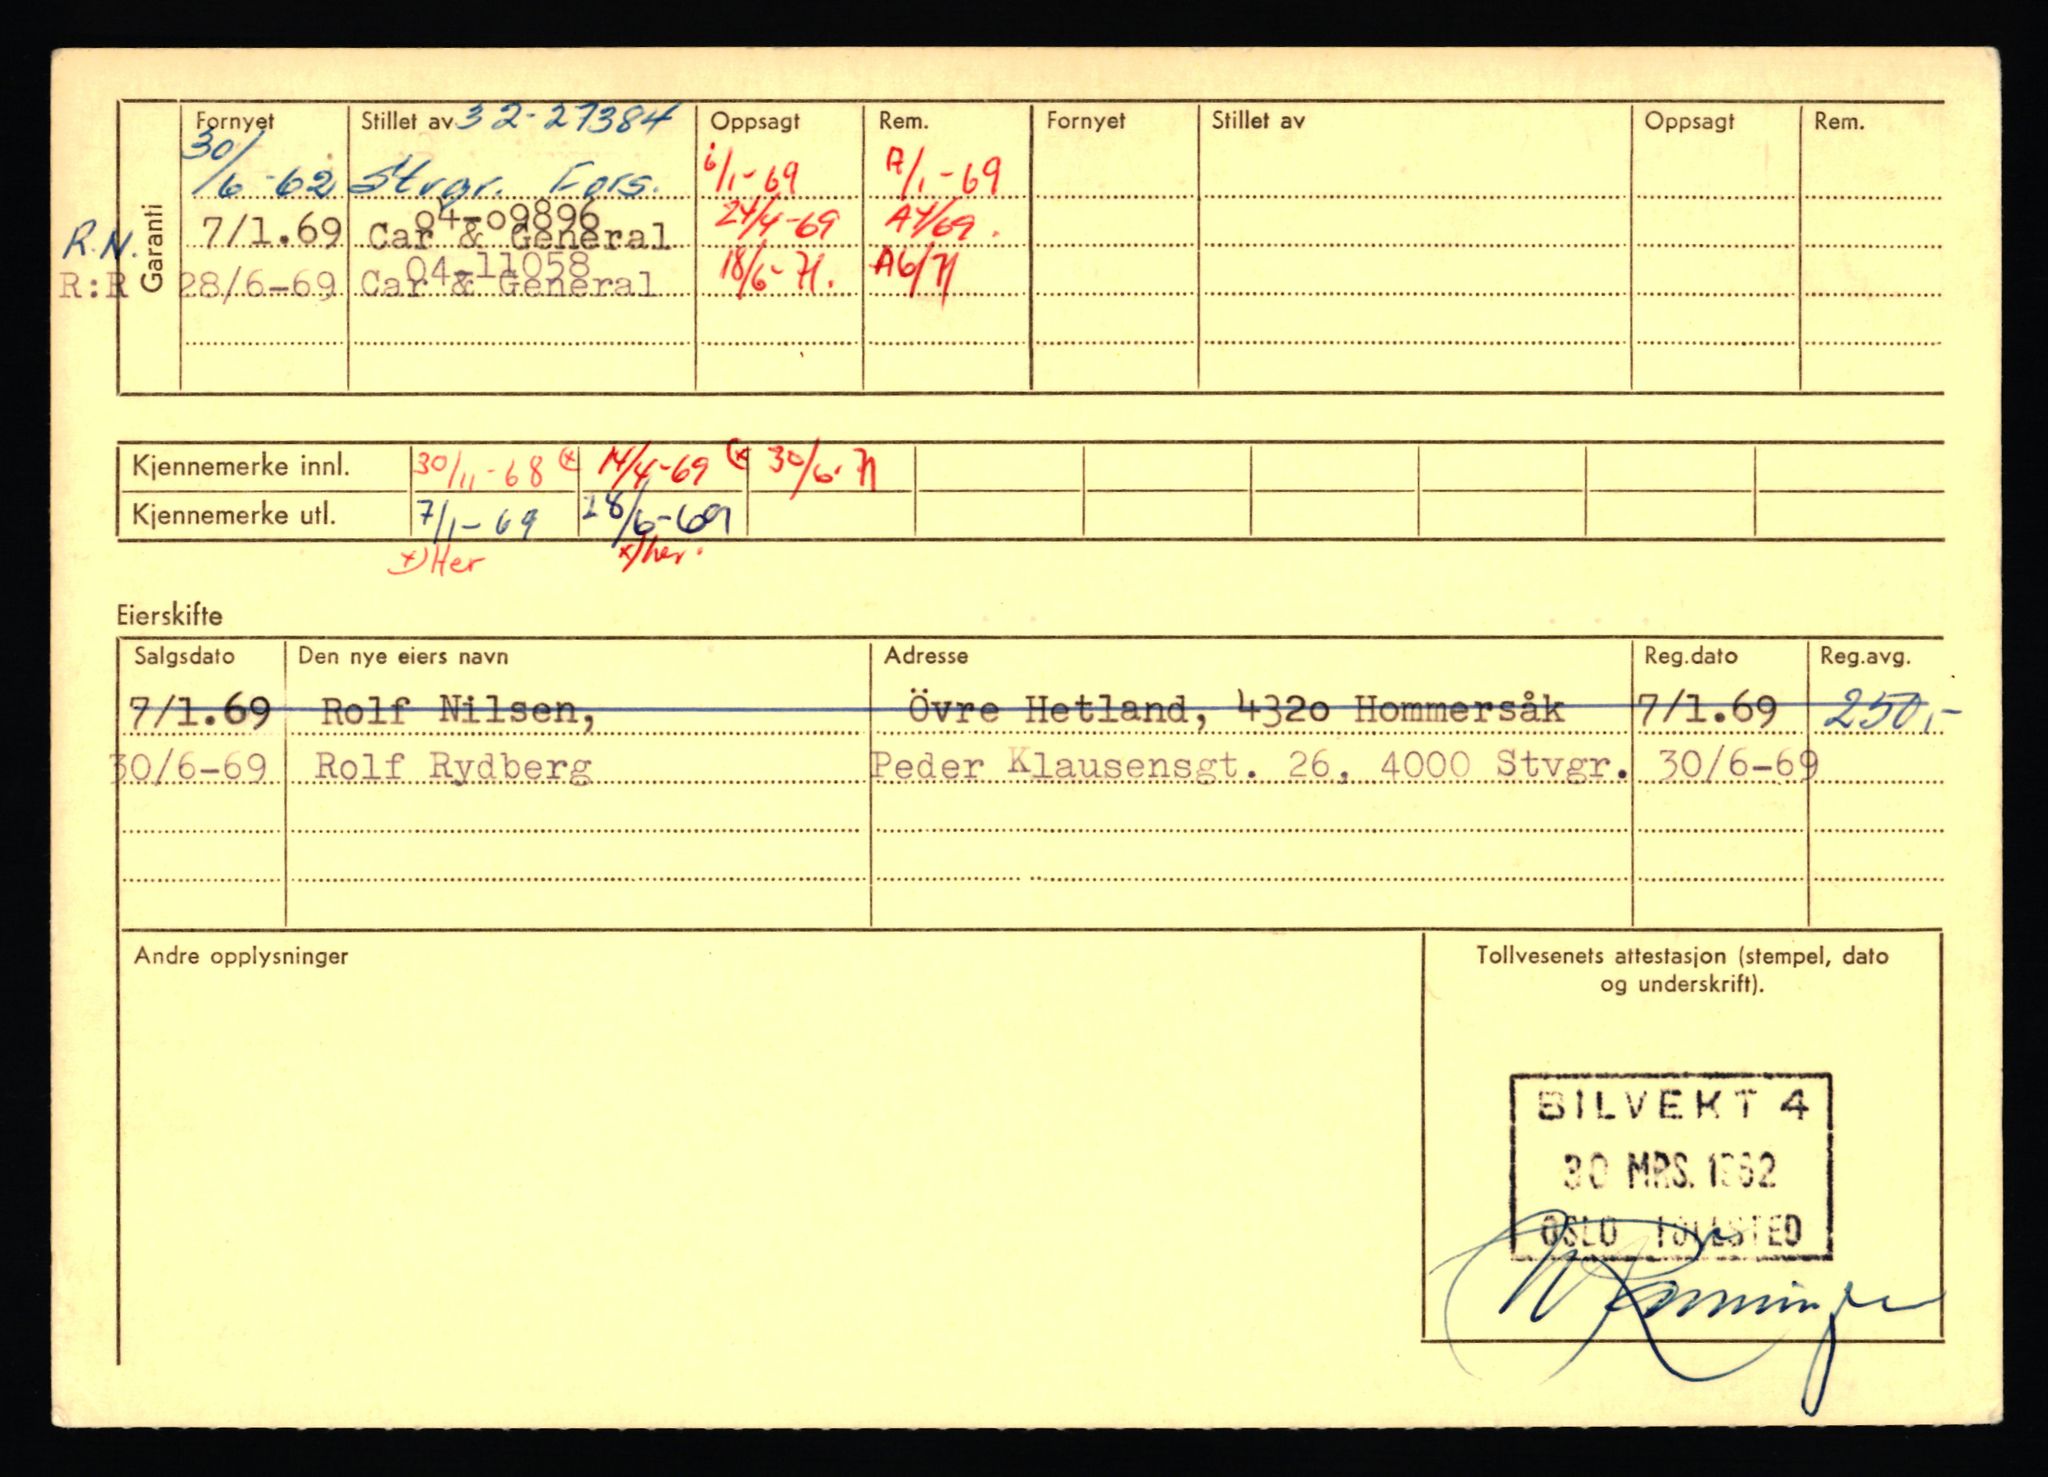 Fornyet Stillet av 32-27384 Oppsagt Rem. Fornyet Stillet av Oppsagt Rem.
30/6-62 Stvgr. Fors. 6/1-69 A/1-69
04-09896
R.N. 7/1.69 Car & General 24/4-69 A4/69.
04-11058
R:R 28/6-69 Car & General 18/6-71. A6/71
Garanti
Kjennemerke innl. 30/11-68 (x) 14/4-69 (x 30/6-71
Kjennemerke utl. 7/1-69 28/6-69
x) Her x) her.
Eierskifte
Salgsdato Den nye eiers navn Adresse Reg.dato Reg.avg.
7/1.69 Rolf Nilsen, Övre Hetland, 432o Hommersåk 7/1.69 250,-
30/6-69 Rolf Rydberg Peder Klausensgt. 26, 4000 Stvgr. 30/6-69
Andre opplysninger
Tollvesenets attestasjon (stempel, dato
og underskrift).
BILVEKT 4
30 MRS. 1962
OSLO TOLLSTED